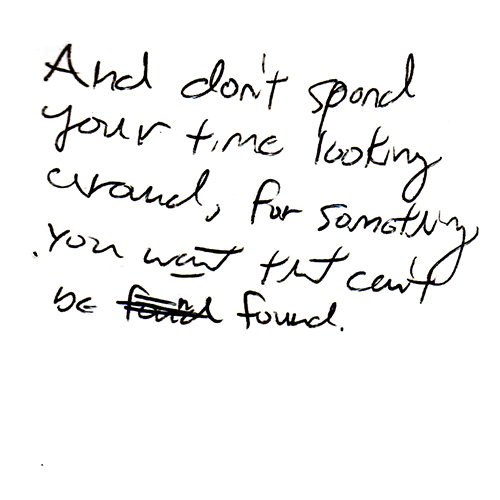 And don't spend
your time looking
around, for something
you want that can't
be found found.